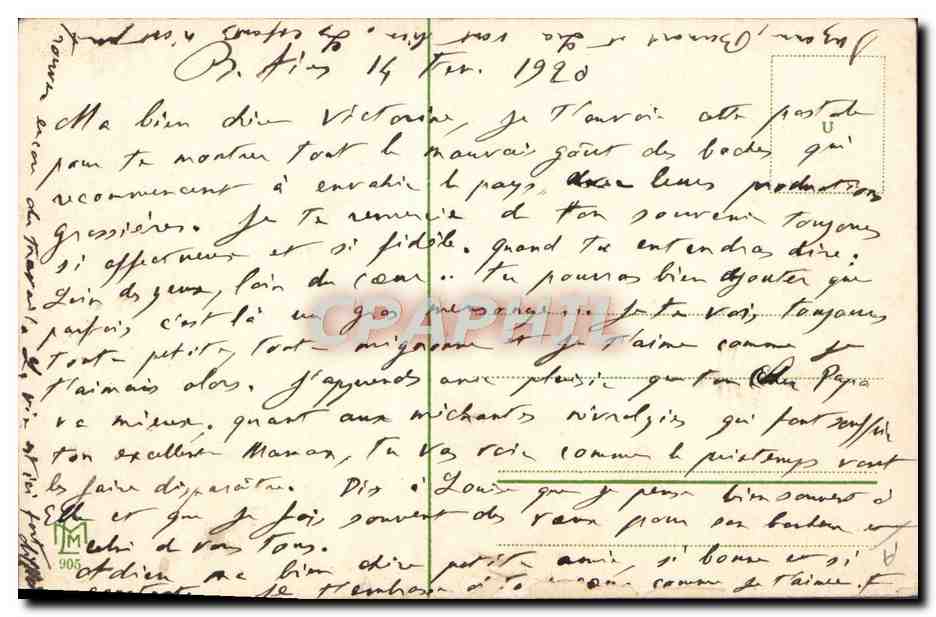 B. Aires 14 Fev. 1920
Ma bien chère Victorine, je t'envoie cette postale
pour te montrer tout le mauvais goût des boches qui
recommencent à envahir le pays avec leurs productions
grossières. Je te remercie de ton souvenir toujours
si affectueux et si fidèle. quand tu entendras dire:
Loin des yeux, loin du cœur.. tu pourras bien ajouter que
parfois c'est là un gros mensonge. Je te vois toujours
toute petite, toute mignonne et je t'aime comme je
t'aimais alors. J'apprends avec plaisir que ton Cher Papa
va mieux. quant aux méchantes névralgies qui font souffrir
ton excellente Maman, tu vas voir comme le printemps vont
les faire disparaître. Dis à Louise que je pense bien souvent à
Elle et que je fais souvent des vœux pour son bonheur et
celui de vous tous.
Adieu ma bien chère petite amie si bonne et si
Je t'embrasse comme je t'aime. F
Suzanne, Bernard et Léa vont bien. Les enfants n'ont pas
trouver encore du travail. La vie est ici fort
CPAPHIL
U
MLM
905
A